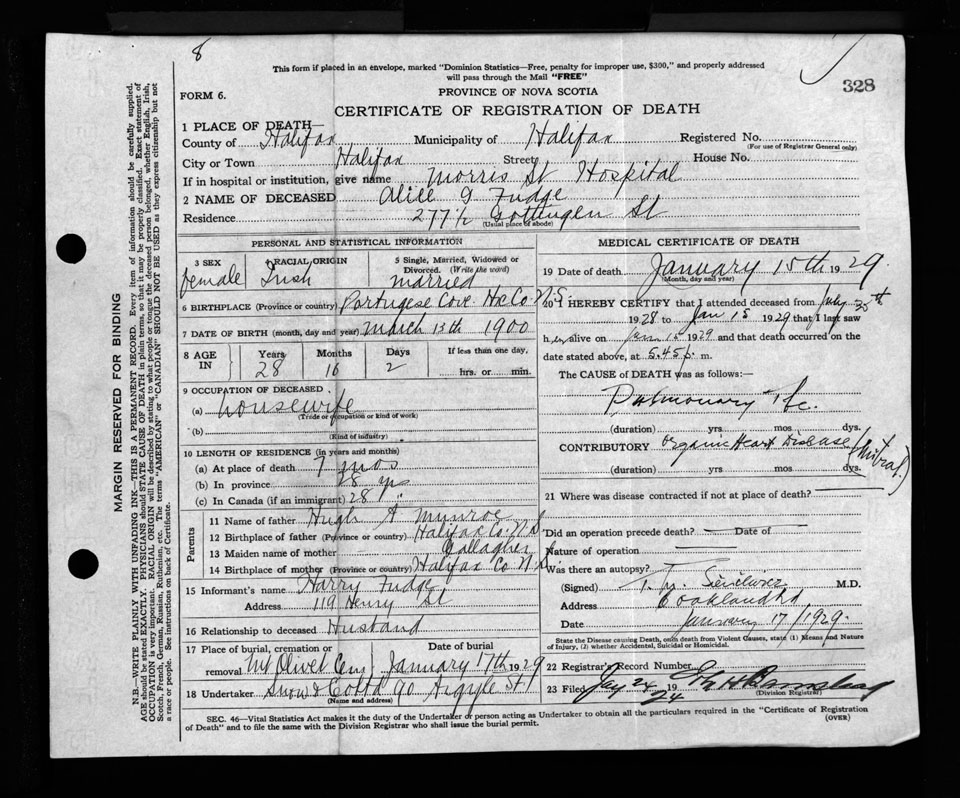 8
This form if placed in an envelope, marked "Dominion Statistics—Free, penalty for improper use, $300," and properly addressed
will pass through the Mail "FREE"
328
FORM 6.
PROVINCE OF NOVA SCOTIA
CERTIFICATE OF REGISTRATION OF DEATH
1 PLACE OF DEATH—
County of Halifax Municipality of Halifax Registered No.
(For use of Registrar General only)
City or Town Halifax Street House No.
If in hospital or institution, give name Morris St Hospital
2 NAME OF DECEASED Alice G Fudge
Residence 277½ Gottingen St
(Usual place of abode)
PERSONAL AND STATISTICAL INFORMATION
3 SEX female
4 RACIAL ORIGIN Irish
5 Single, Married, Widowed or Divorced. (Write the word) married
6 BIRTHPLACE (Province or country) Portugese Cove Hx Co. N.S
7 DATE OF BIRTH (month, day and year) March 13th 1900
8 AGE IN Years 28 Months 10 Days 2 If less than one day, hrs. or min.
9 OCCUPATION OF DECEASED
(a) housewife
(Trade or occupation or kind of work)
(b)
(Kind of industry)
10 LENGTH OF RESIDENCE (in years and months)
(a) At place of death 7 mos
(b) In province 28 yrs
(c) In Canada (if an immigrant) 28 "
Parents
11 Name of father Hugh A Munroe
12 Birthplace of father (Province or country) Halifax Co. N.S.
13 Maiden name of mother Gallagher
14 Birthplace of mother (Province or country) Halifax Co N.S
15 Informant's name Harry Fudge
Address 119 Henry St
16 Relationship to deceased Husband
17 Place of burial, cremation or removal Mt Olivet Cem Date of burial January 17th 1929
18 Undertaker Snow & Co Ltd 90 Argyle St
(Name and address)
MEDICAL CERTIFICATE OF DEATH
19 Date of death January 15th 1929
(Month, day and year)
20 I HEREBY CERTIFY that I attended deceased from July
1928 to Jan 15 1929 that I last saw
h er alive on Jan 15 1929 and that death occurred on the
date stated above, at 5.45 p. m.
The CAUSE of DEATH was as follows:—
Pulmonary Tbc.
(duration) yrs mos dys.
CONTRIBUTORY Organic Heart Disease (Mitral)
(duration) yrs mos dys.
21 Where was disease contracted if not at place of death?
Did an operation precede death? Date of
Nature of operation
Was there an autopsy?
(Signed) M.D.
Address
Date January 17/1929.
State the Disease causing Death, or in death from Violent Causes, state (1) Means and Nature
of Injury, (2) whether Accidental, Suicidal or Homicidal.
22 Registrar's Record Number
23 Filed Jan 24 19
24
(Division Registrar)
SEC. 46—Vital Statistics Act makes it the duty of the Undertaker or person acting as Undertaker to obtain all the particulars required in the "Certificate of Registration
of Death" and to file the same with the Division Registrar who shall issue the burial permit.
(OVER)
MARGIN RESERVED FOR BINDING
N.B.—WRITE PLAINLY WITH UNFADING INK—THIS IS A PERMANENT RECORD. Every item of information should be carefully supplied.
AGE should be stated EXACTLY. PHYSICIANS should STATE CAUSE OF DEATH in plain terms, so that it may be properly classified. Exact statement of
OCCUPATION is very important. RACIAL ORIGIN will be described by stating to what people or tongue the deceased person belonged, whether English, Irish,
Scotch, French, German, Russian, Ruthenian, etc. The terms "AMERICAN" or "CANADIAN" SHOULD NOT BE USED as they express citizenship but not
a race or people. See instructions on back of Certificate.